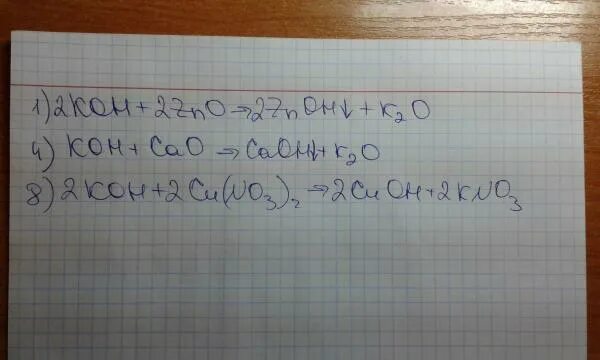 1) 2KOH + 2ZnO → 2ZnOH↓ + K₂O
4) KOH + CaO → CaOH↓ + K₂O
8) 2KOH + 2Cu(NO₃)₂ → 2CuOH + 2KNO₃